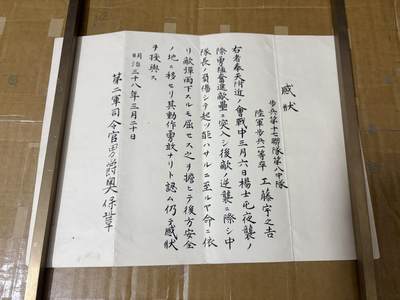 感状
歩兵第十七聯隊第八中隊
陸軍歩兵一等卒 工藤宇之吉
右者奉天附近ノ會戦中三月六日楊士屯夜襲ノ
際勇猛奮進敵壘ニ突入シ後敵ノ逆襲ニ際シ中
隊長ノ負傷シテ起ツ能ハサルニ至ルヤ命ニ依
リ敵弾雨下スルモ屈セス之ヲ擔ヒテ後方安全
ノ地ニ移セリ其動作勇敢ナリト認ム仍テ感状
ヲ授與ス
明治三十八年三月二十日
第二軍司令官男爵奥保鞏